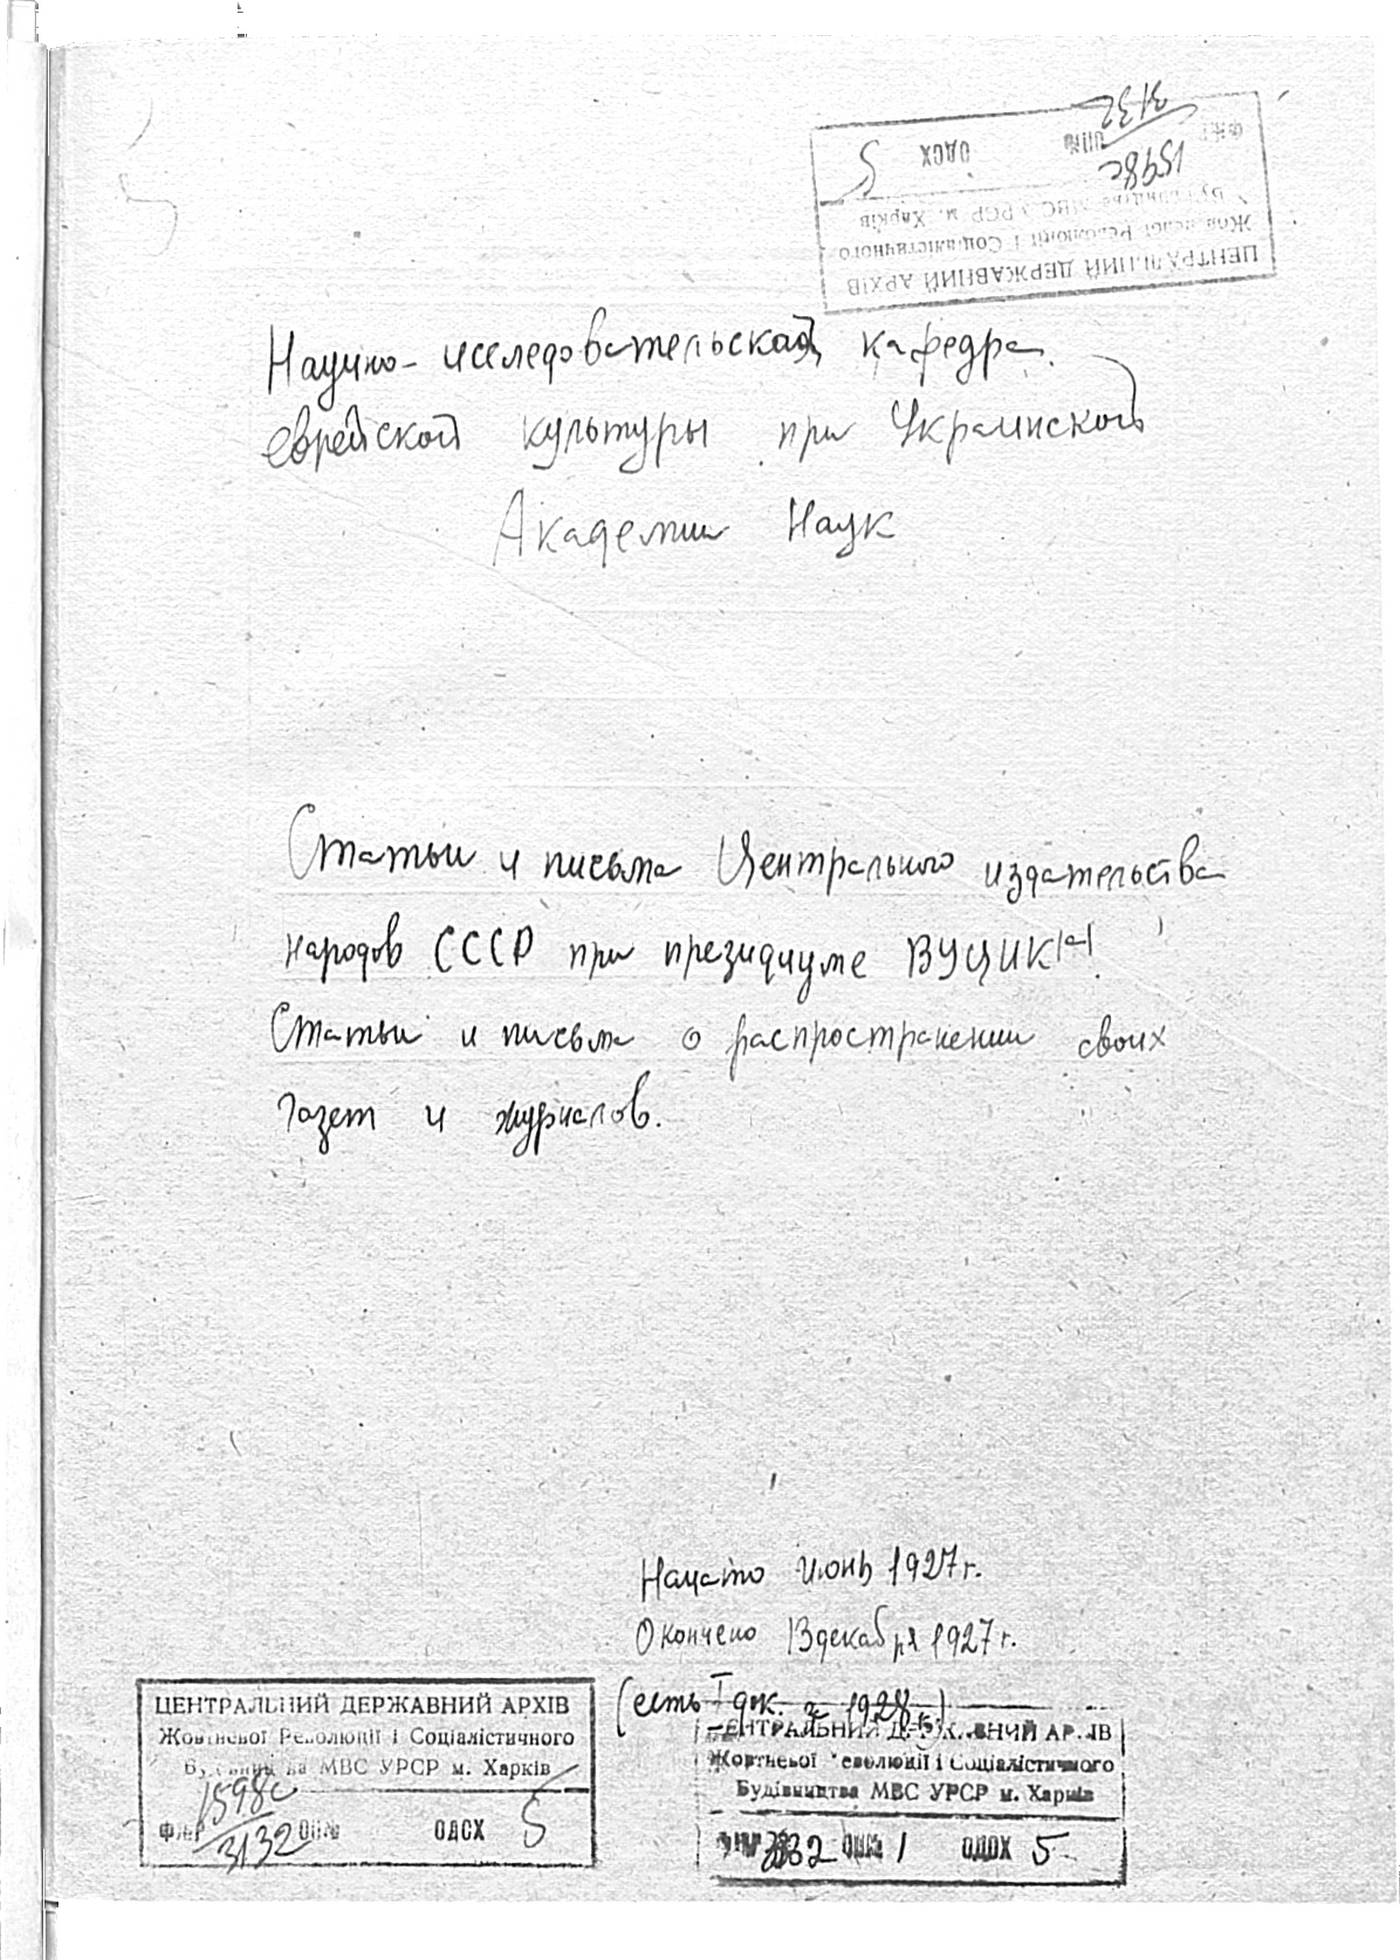 ЦЕНТРАЛЬНИЙ ДЕРЖАВНИЙ АРХІВ
Жовтневої Революції і Соціалістичного
Будівництва МВС УРСР м. Харків
1598с
3132
ОП№
ОДСХ 5
Научно-исследовательская кафедра
еврейской культуры при Украинской
Академии Наук
Статьи и письма Центрального издательства
народов СССР при президиуме ВУЦИКа.
Статьи и письма о распространении своих
газет и журналов.
Начато июнь 1927 г.
Окончено 13 декабря 1927 г.
(есть I док. за 1928 г.)
ЦЕНТРАЛЬНИЙ ДЕРЖАВНИЙ АРХІВ
Жовтневої Революції і Соціалістичного
Будівництва МВС УРСР м. Харків
1598с
3132 ОП№ ОДСХ 5
ЦЕНТРАЛЬНИЙ ДЕРЖАВНИЙ АРХІВ
Жовтневої Революції і Соціалістичного
Будівництва МВС УРСР м. Харків
3132 ОП№ 1 ОДСХ 5